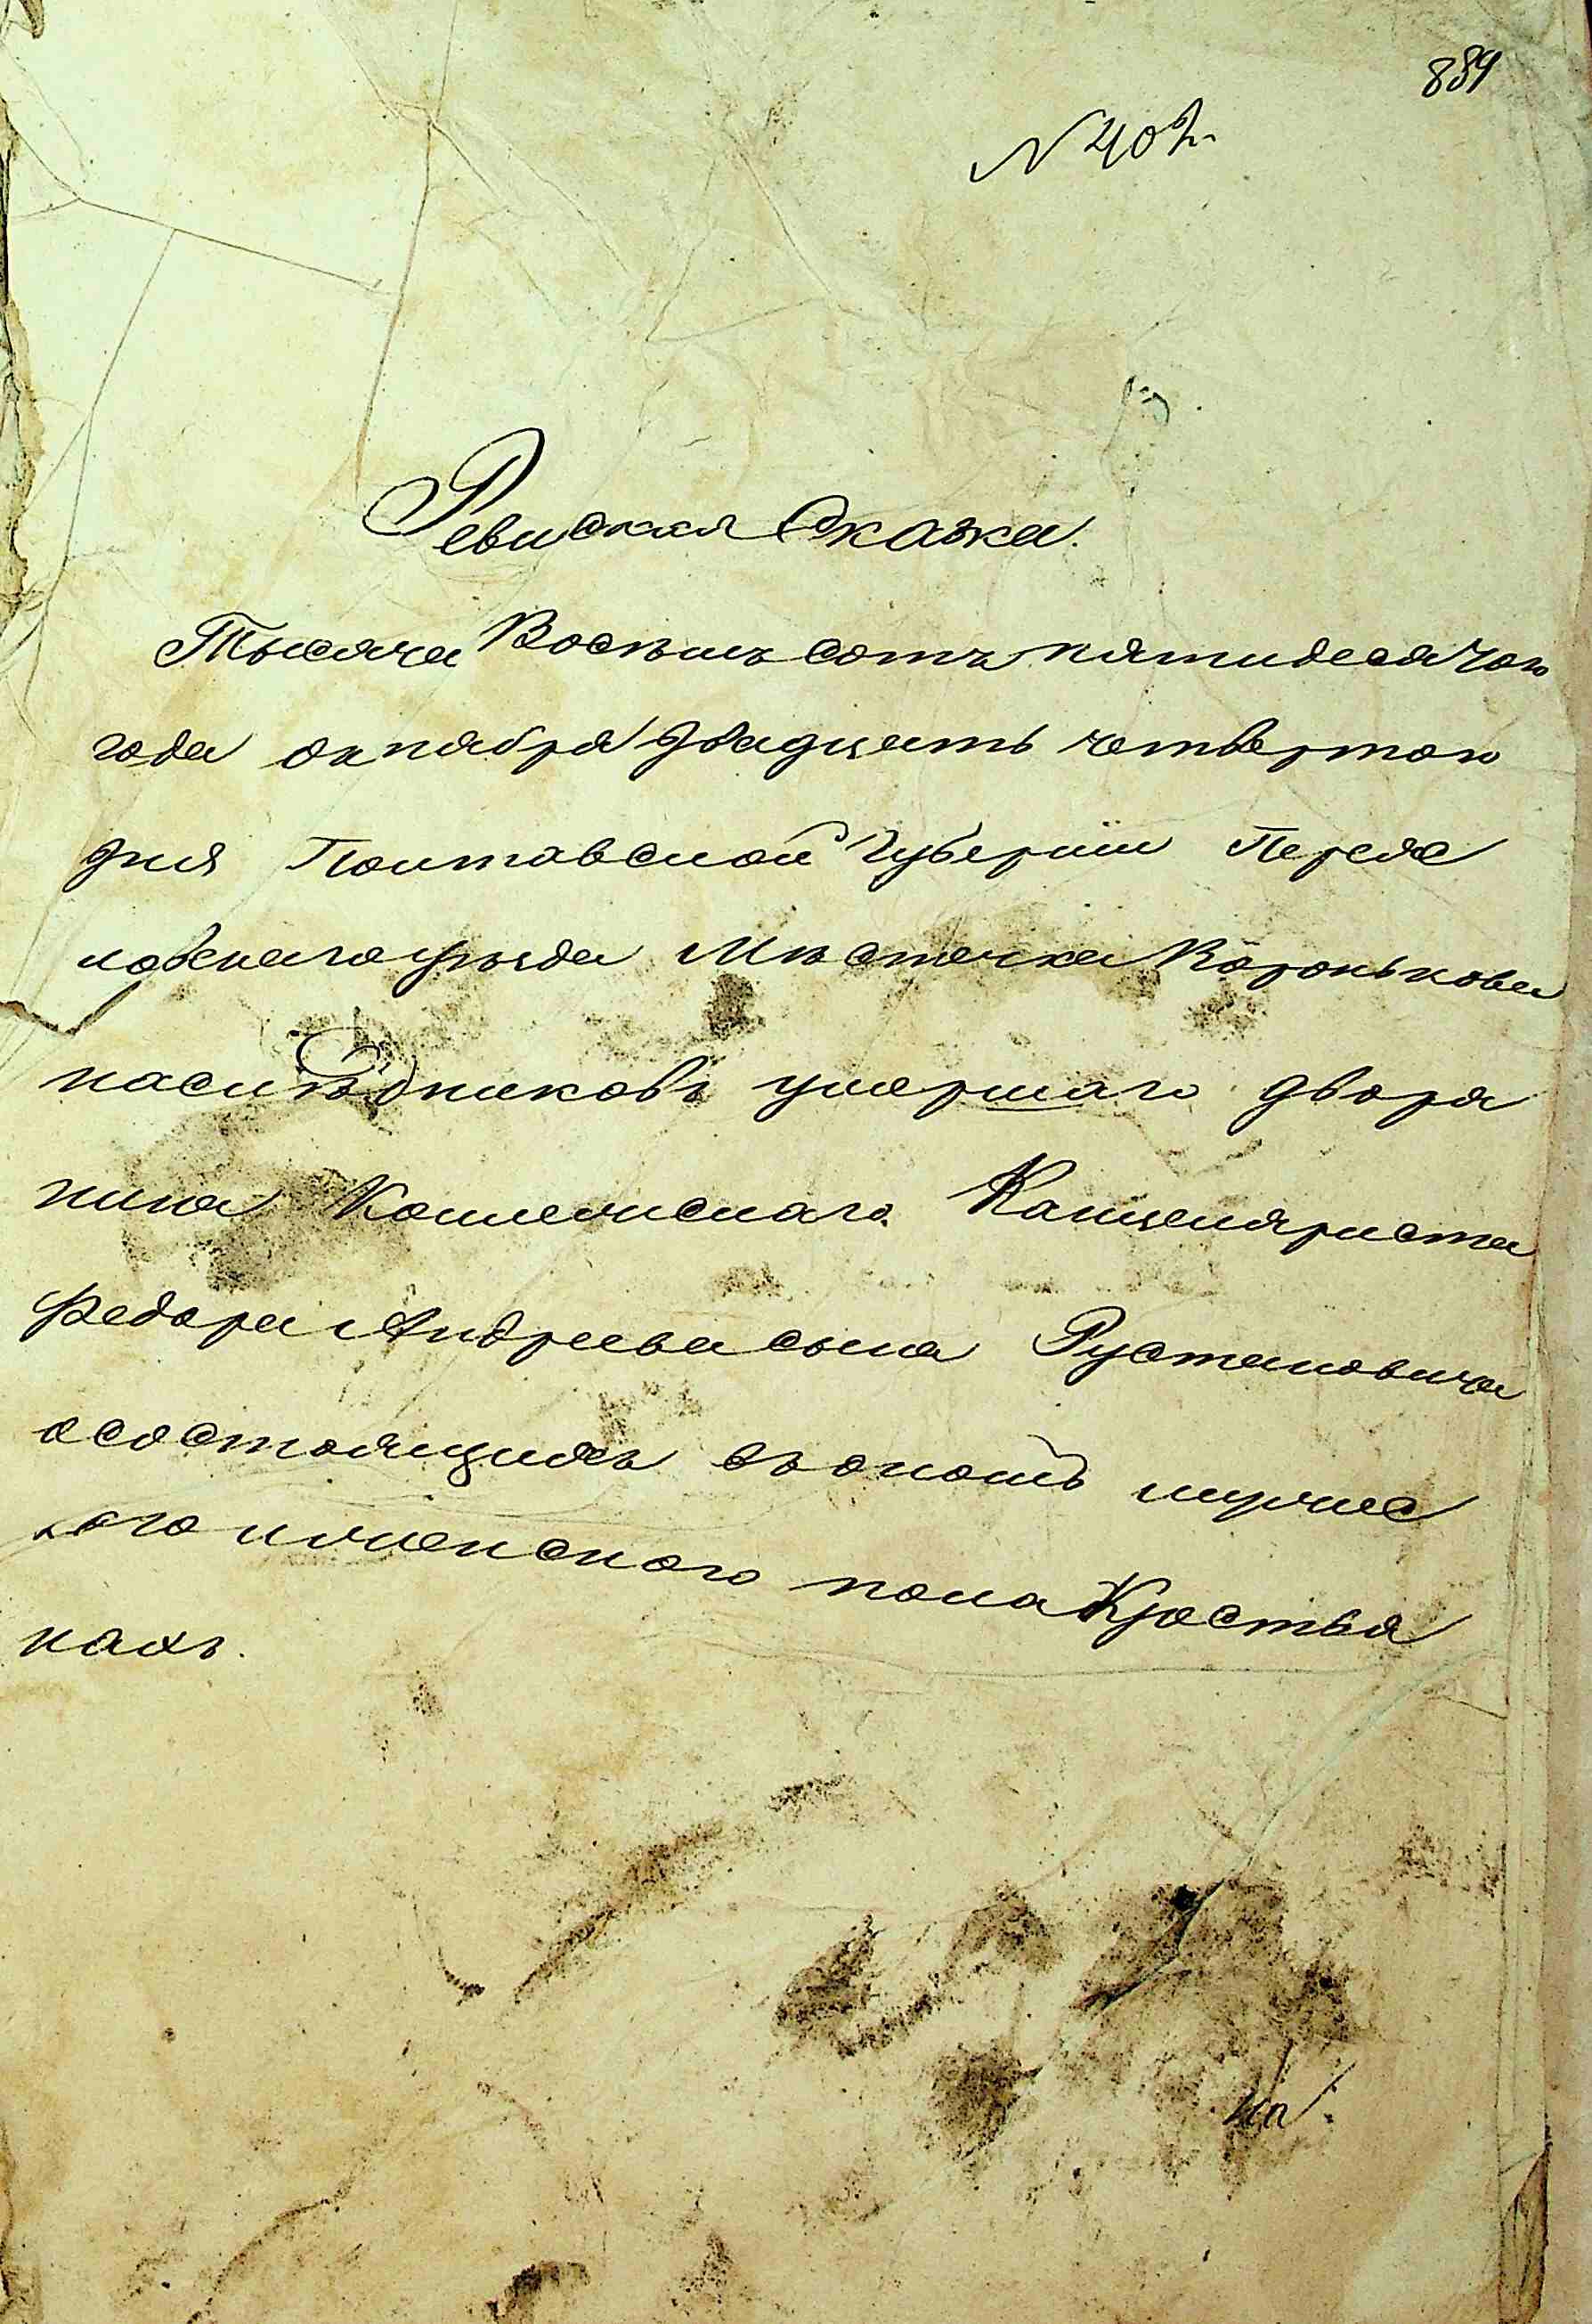 889
N 402
Ревиская Сказка.
Тысяча Восемь сотъ пятидесятого
года октября двадцать четвертого
дня Полтавской Губерніи Переяс
ловскаго уѣзда Мѣстечка Воронькова
наслѣдниковъ умершаго дворя
нина Коллежскаго Канцеляриста
Федора Андреева сына Рустановича
осостоящихъ въ ономъ мужес
кого иженского пола Крестья
нахъ.